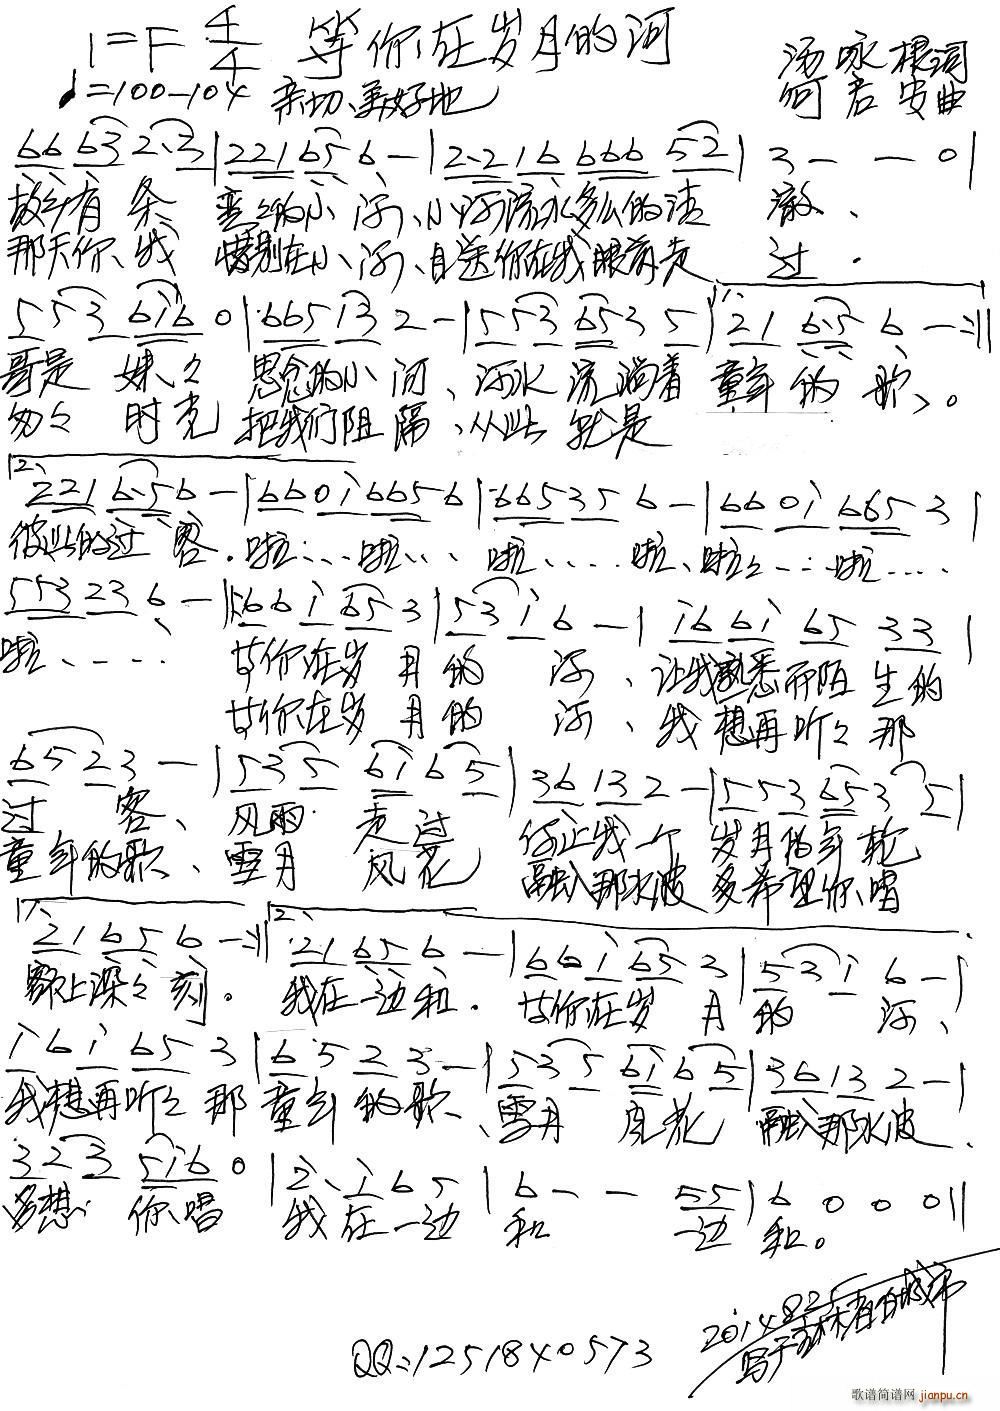 1=F 4/4 等你在岁月的河
汤咏根词
♩=100-104 亲切、美好地
何君安曲
66 63 2·3 | 221 65 6 - | 2·21 6 666 52 | 3 - - 0 |
故乡有条 弯弯的小河、小河流水多么的清澈、
那天你、我 惜别在小河、目送你在我眼前走过.
5 53 6i6 0 | 665 13 2 - | 553 653 5 | 1、 21 6·5 6 - :||
哥是妹妹 思念的小河、河水流淌着童年的歌、。
匆匆时光 把我们阻隔、从此就是
2、 221 6·5 6 - | 66 0i 665 6 | 665 35 6 - | 66 0i 665 3 |
彼此的过客. 啦…… 啦…… 啦…… 啦、啦…… 啦……
553 23 6 - | 66i 65 3 | 53 i 6 - | i6 6i 65 33 |
啦、……
甘你在岁月的河、让我熟悉而陌生的
甘你在岁月的河、我想再听听那
65 23 - | 53 5 6i 65 | 36 13 2 - | 553 653 5 |
过客、风雨走过 你让我一个 岁月的年轮
童年的歌、雪月风花 融入那水波 多希望你唱
1、 21 65 6 - :|| 2、 21 65 6 - | 66i 65 3 | 53 i 6 - |
额上深深刻。 我在一边和. 甘你在岁月的河、
i6i 65 3 | 65 23 - | 53 5 6i 65 | 36 13 2 - |
我想再听听那童年的歌、雪月风花 融入那水波.
323 5i6 0 | 2· i 65 | 6 - - 55 | 6 0 0 0 ||
多想你唱 我在一边和 边和。
2014.8.25
QQ:1251840573
歌谱简谱网 jianpu.cn